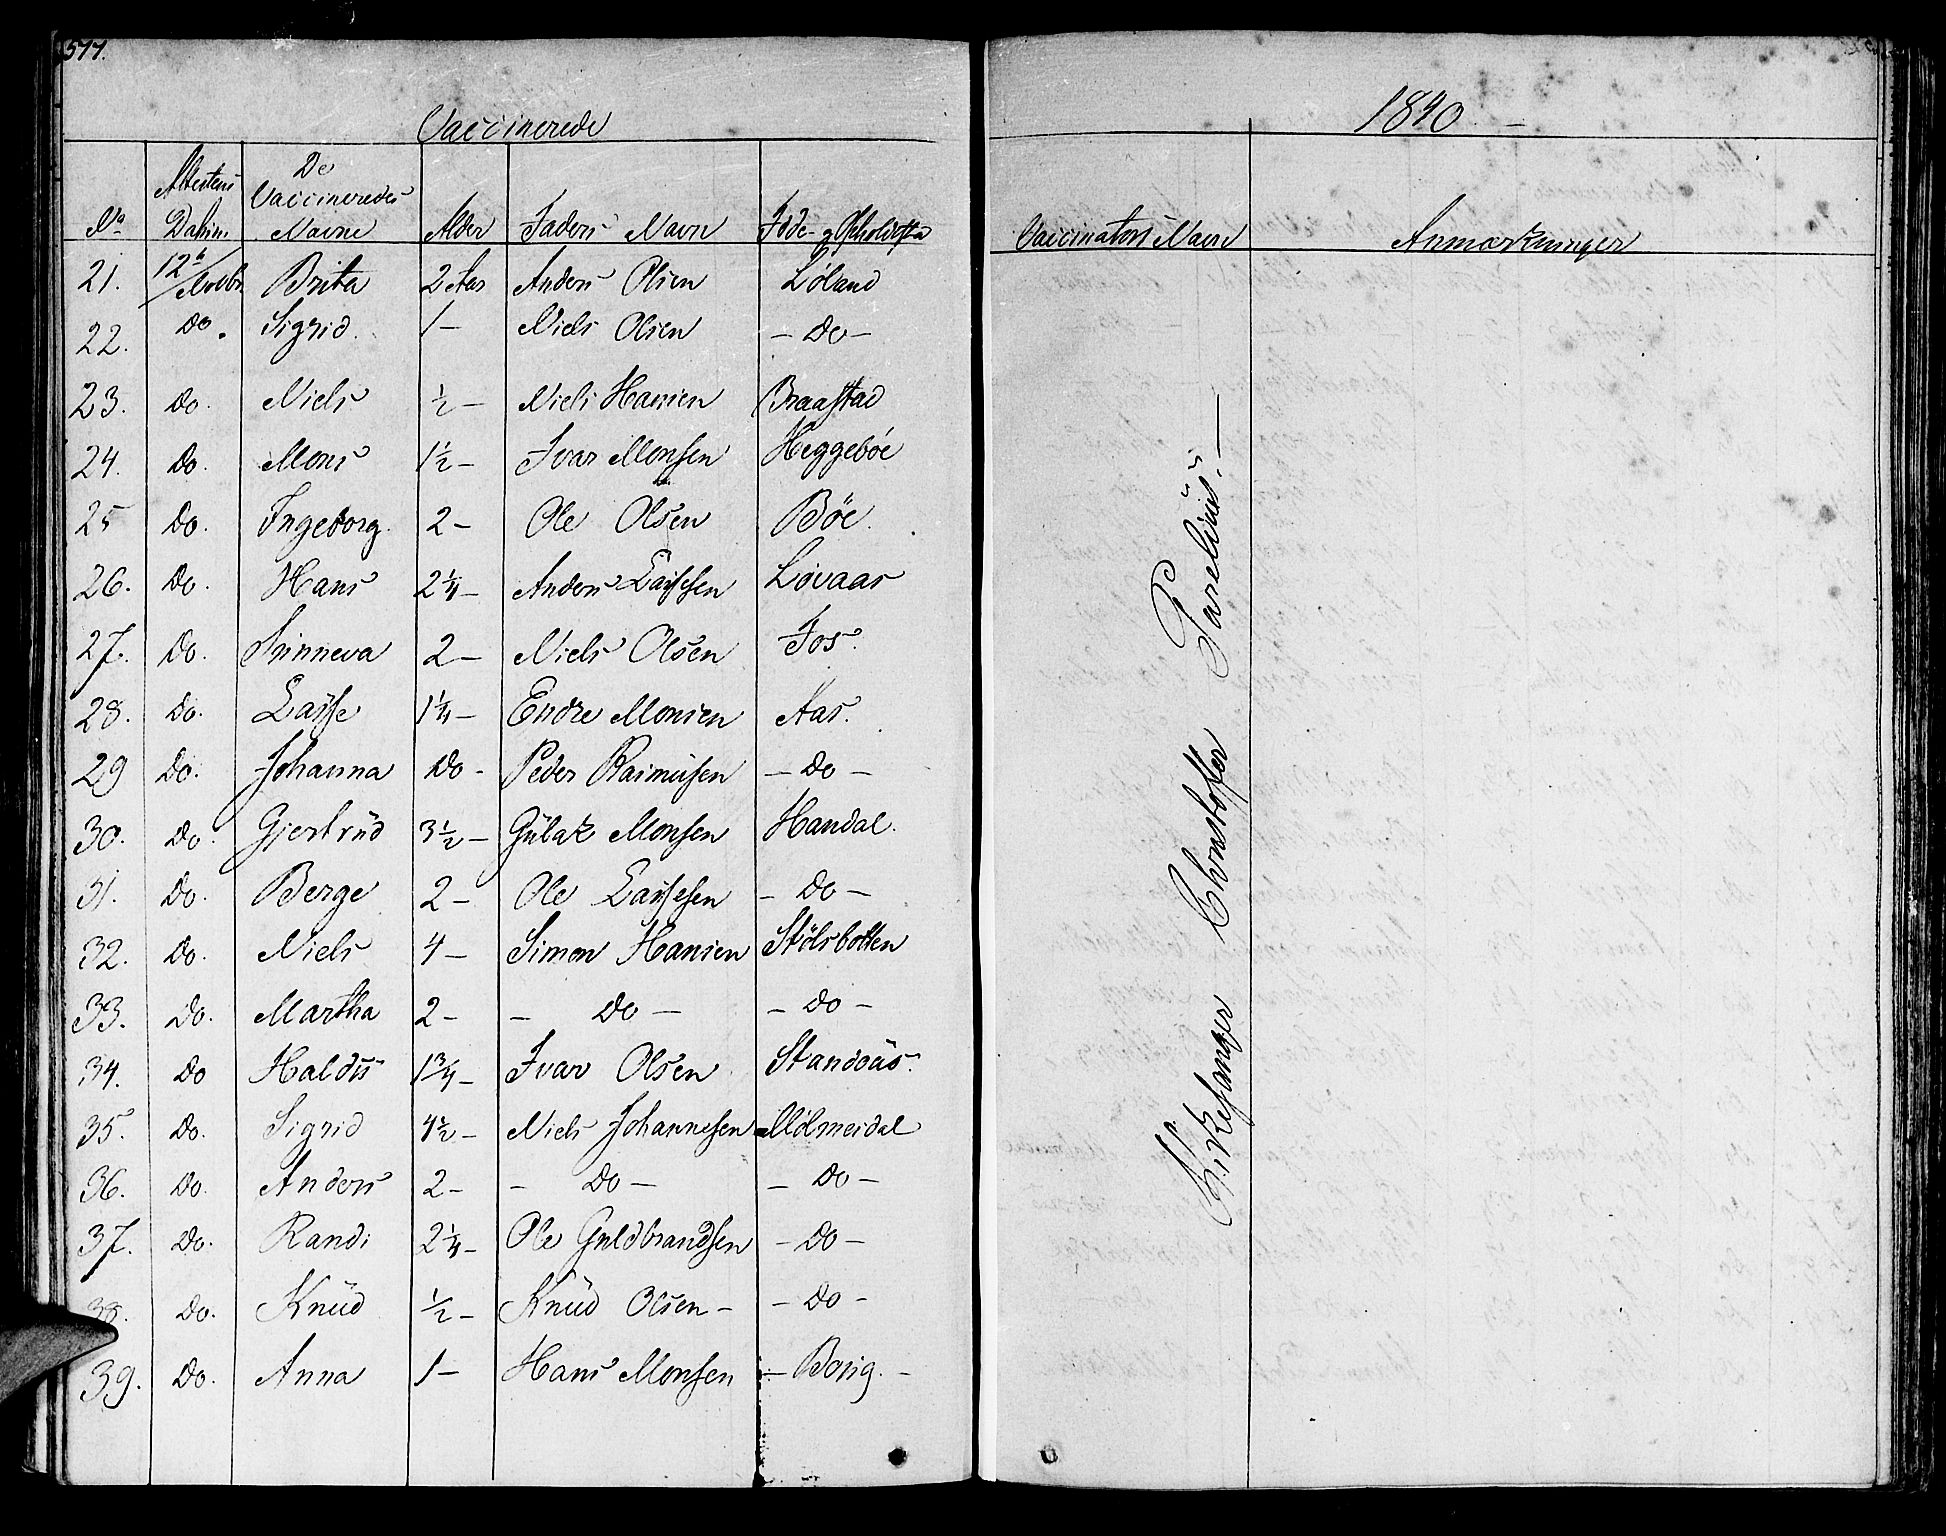 577.
Vaccinerede
No
Attestens Datum
De Vaccineredes Navne
Alder
Faders Navn
Føde- og Opholdssted
21. 12te/Novbr. Brita 2 Aar Anders Olsen Løland
22. Do. Sigrid. 1 – Niels Olsen – Do –
23. Do. Niels ½ – Niels Hansen Braastad
24. Do. Mons 1½ – Ivar Monsen Heggebøe
25 Do. Ingeborg. 2 – Ole Olsen Bøe.
26. Do. Hans 2¼ – Anders Lassesen Løvaas
27. Do. Sinneva 2 – Niels Olsen Fos.
28. Do. Lasse 1¼ – Endre Monsen Aas.
29 Do. Johanna Do – Peder Rasmusen – Do –
30. Do. Gjertrüd 3½ – Gulak Monsen Handal.
31. Do. Berge 2 – Ole Lassesen – Do –
32. Do. Niels 4 – Simon Hansen Stölsbotten
33. Do. Martha 2 – – Do – – Do –
34. Do Haldis 1¾ – Ivar Olsen Standoas.
35. Do. Sigrid 4½ – Niels Johannesen Mölmeidal
36. Do. Anders 2 – – Do – – Do –
37. Do. Randi 2¼ – Ole Guldbrandsen – Do –
38. Do. Knüd ½ – Knüd Olsen – – Do –
39. Do. Anna 1 – Hans Monsen – Borig. –
1840. –
Vaccinators Navn
Anmærkninger
Kirkesanger Christoffer Parelius. –